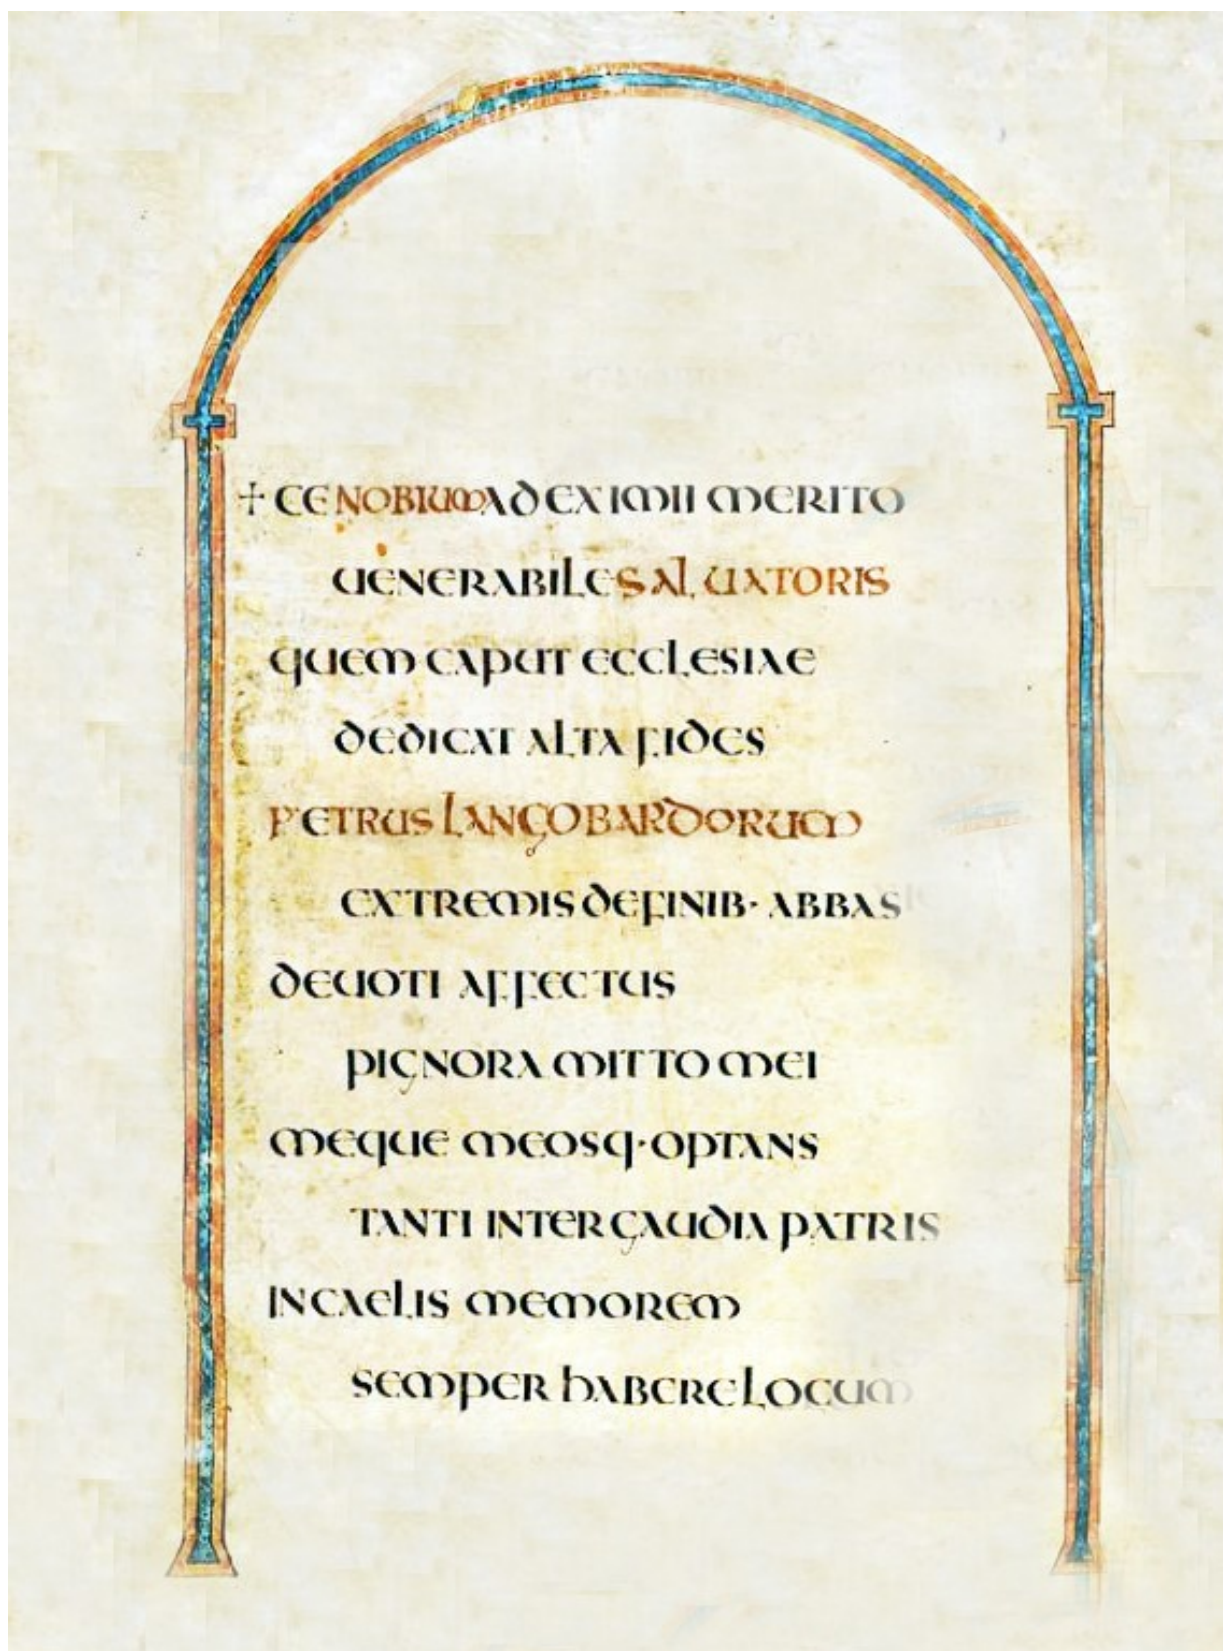 ✝ CENOBIUM AD EXIMII MERITO
UENERABILE SALUATORIS
QUEM CAPUT ECCLESIAE
DEDICAT ALTA FIDES
PETRUS LANGOBARDORUM
EXTREMIS DE FINIB· ABBAS
DEUOTI AFFECTUS
PIGNORA MITTO MEI
MEQUE MEOSQ·OPTANS
TANTI INTER GAUDIA PATRIS
IN CAELIS MEMOREM
SEMPER HABERE LOCUM